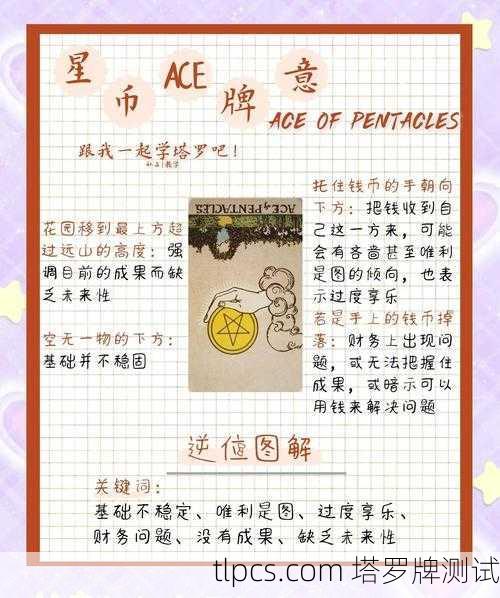 星币ACE牌意
ACE OF PENTACLES
跟我一起学塔罗吧！
ACE of PENTACLES
花园移到最上方超
过远山的高度：强
调目前的成果而缺
乏未来性
空无一物的下方：
基础并不稳固
托住钱币的手朝向
下方：把钱收到自
己这一方来，可能
会有吝啬甚至唯利
是图的倾向，也表
示过度享乐
若是手上的钱币掉
落：财务上出现问
题，或无法把握住
成果，或暗示可以
用钱来解决问题
逆位图解
关键词：
基础不稳定、唯利是图、过度享乐、
财务问题、没有成果、缺乏未来性
tlpcs.com 塔罗牌测试